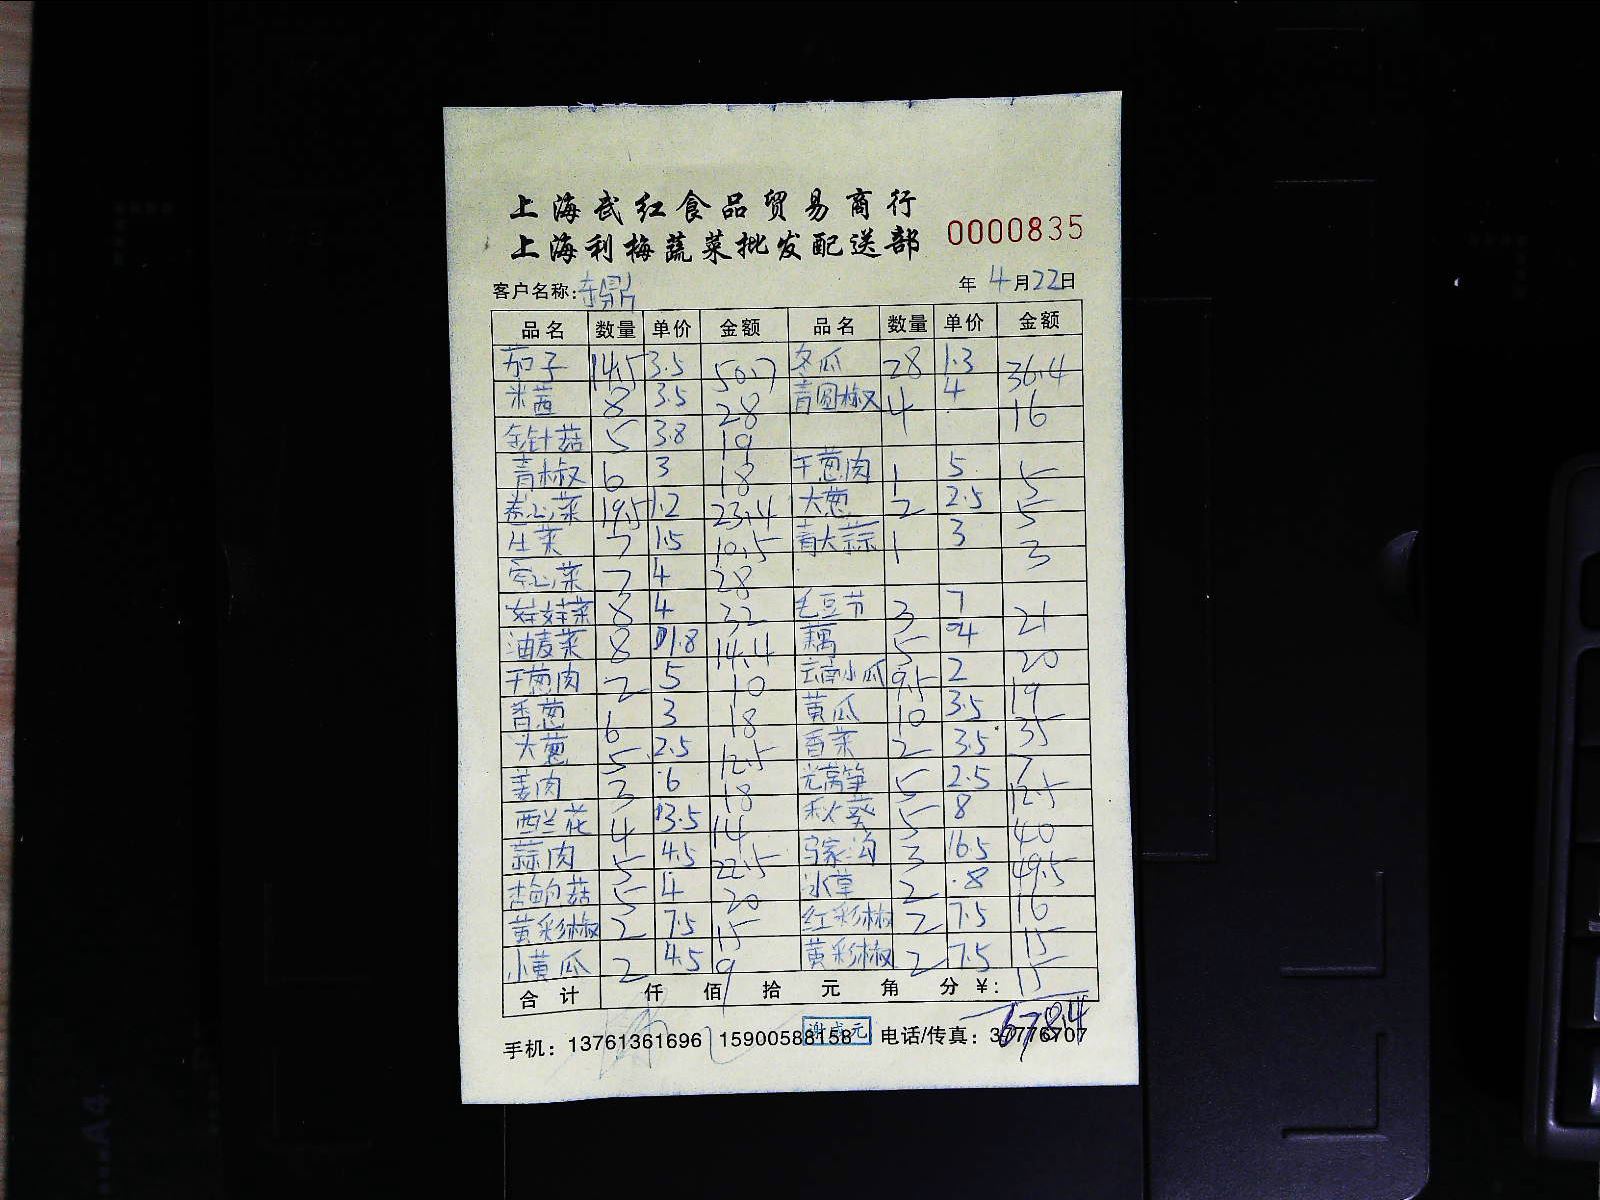 上海武红食品贸易商行
上海利梅蔬菜批发配送部 0000835
客户名称: 年 4月22日
品名 数量 单价 金额 品名 数量 单价 金额
茄子 14.5 3.5 50.7 冬瓜 28 1.3 36.4
米茜 8 3.5 28 青圆椒 4 4 16
金针菇 5 3.8 19
青椒 6 3 18 干葱肉 1 5 5
卷心菜 19.5 1.2 23.4 大葱 2 2.5 5
生菜 7 1.5 10.5 青大蒜 1 3 3
空心菜 7 4 28
娃娃菜 8 4 32 毛豆节 3 7 21
油麦菜 8 1.8 14.4 藕 5 4 20
干葱肉 2 5 10 云南小瓜 9.5 2 19
香葱 6 3 18 黄瓜 10 3.5 35
大葱 5 2.5 12.5 香菜 2 3.5 7
姜肉 3 6 18 光莴笋 5 2.5 12.5
西兰花 4 3.5 14 秋葵 5 8 40
蒜肉 5 4.5 22.5 马家沟 3 16.5 49.5
杏鲍菇 5 4 20 冰草 2 8 16
黄彩椒 2 7.5 15 红彩椒 2 7.5 15
小黄瓜 2 4.5 9 黄彩椒 2 7.5 15
合计 仟 佰 拾 元 角 分 ¥:
678.4
手机: 13761361696 15900588158 电话/传真: 37776707